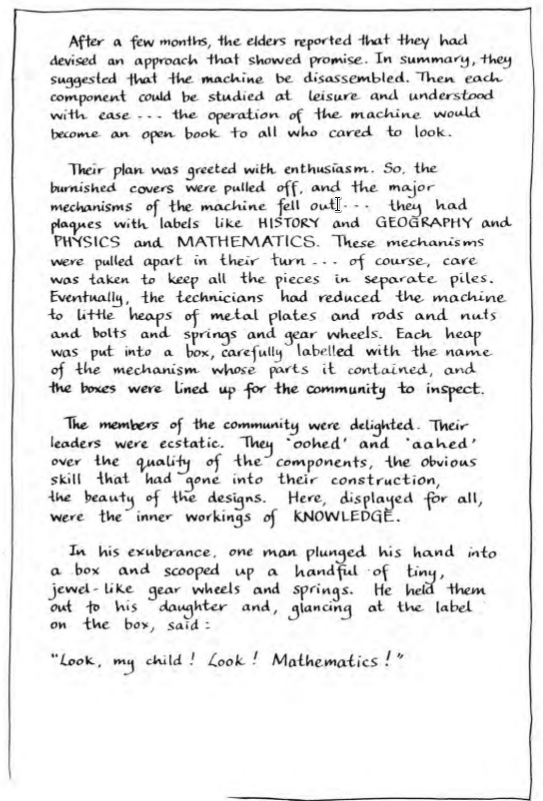 After a few months, the elders reported that they had
devised an approach that showed promise. In summary, they
suggested that the machine be disassembled. Then each
component could be studied at leisure and understood
with ease --- the operation of the machine would
become an open book to all who cared to look.
Their plan was greeted with enthusiasm. So, the
burnished covers were pulled off, and the major
mechanisms of the machine fell out --- they had
plaques with labels like HISTORY and GEOGRAPHY and
PHYSICS and MATHEMATICS. These mechanisms
were pulled apart in their turn --- of course, care
was taken to keep all the pieces in separate piles.
Eventually, the technicians had reduced the machine
to little heaps of metal plates and rods and nuts
and bolts and springs and gear wheels. Each heap
was put into a box, carefully labelled with the name
of the mechanism whose parts it contained, and
the boxes were lined up for the community to inspect.
The members of the community were delighted. Their
leaders were ecstatic. They 'oohed' and 'aahed'
over the quality of the components, the obvious
skill that had gone into their construction,
the beauty of the designs. Here, displayed for all,
were the inner workings of KNOWLEDGE.
In his exuberance, one man plunged his hand into
a box and scooped up a handful of tiny,
jewel-like gear wheels and springs. He held them
out to his daughter and, glancing at the label
on the box, said:
"Look, my child! Look! Mathematics!"